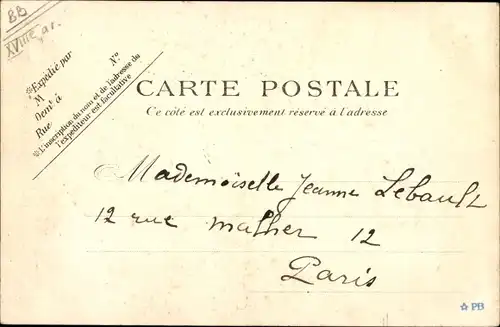 BB
XVIIIe ar.
Expédié par
M
Demt à
Rue
N°
L'inscription du nom et de l'adresse de
l'expéditeur est facultative
CARTE POSTALE
Ce côté est exclusivement réservé à l'adresse
Mademoiselle Jeanne Lebault
12 rue malher 12
Paris
PB